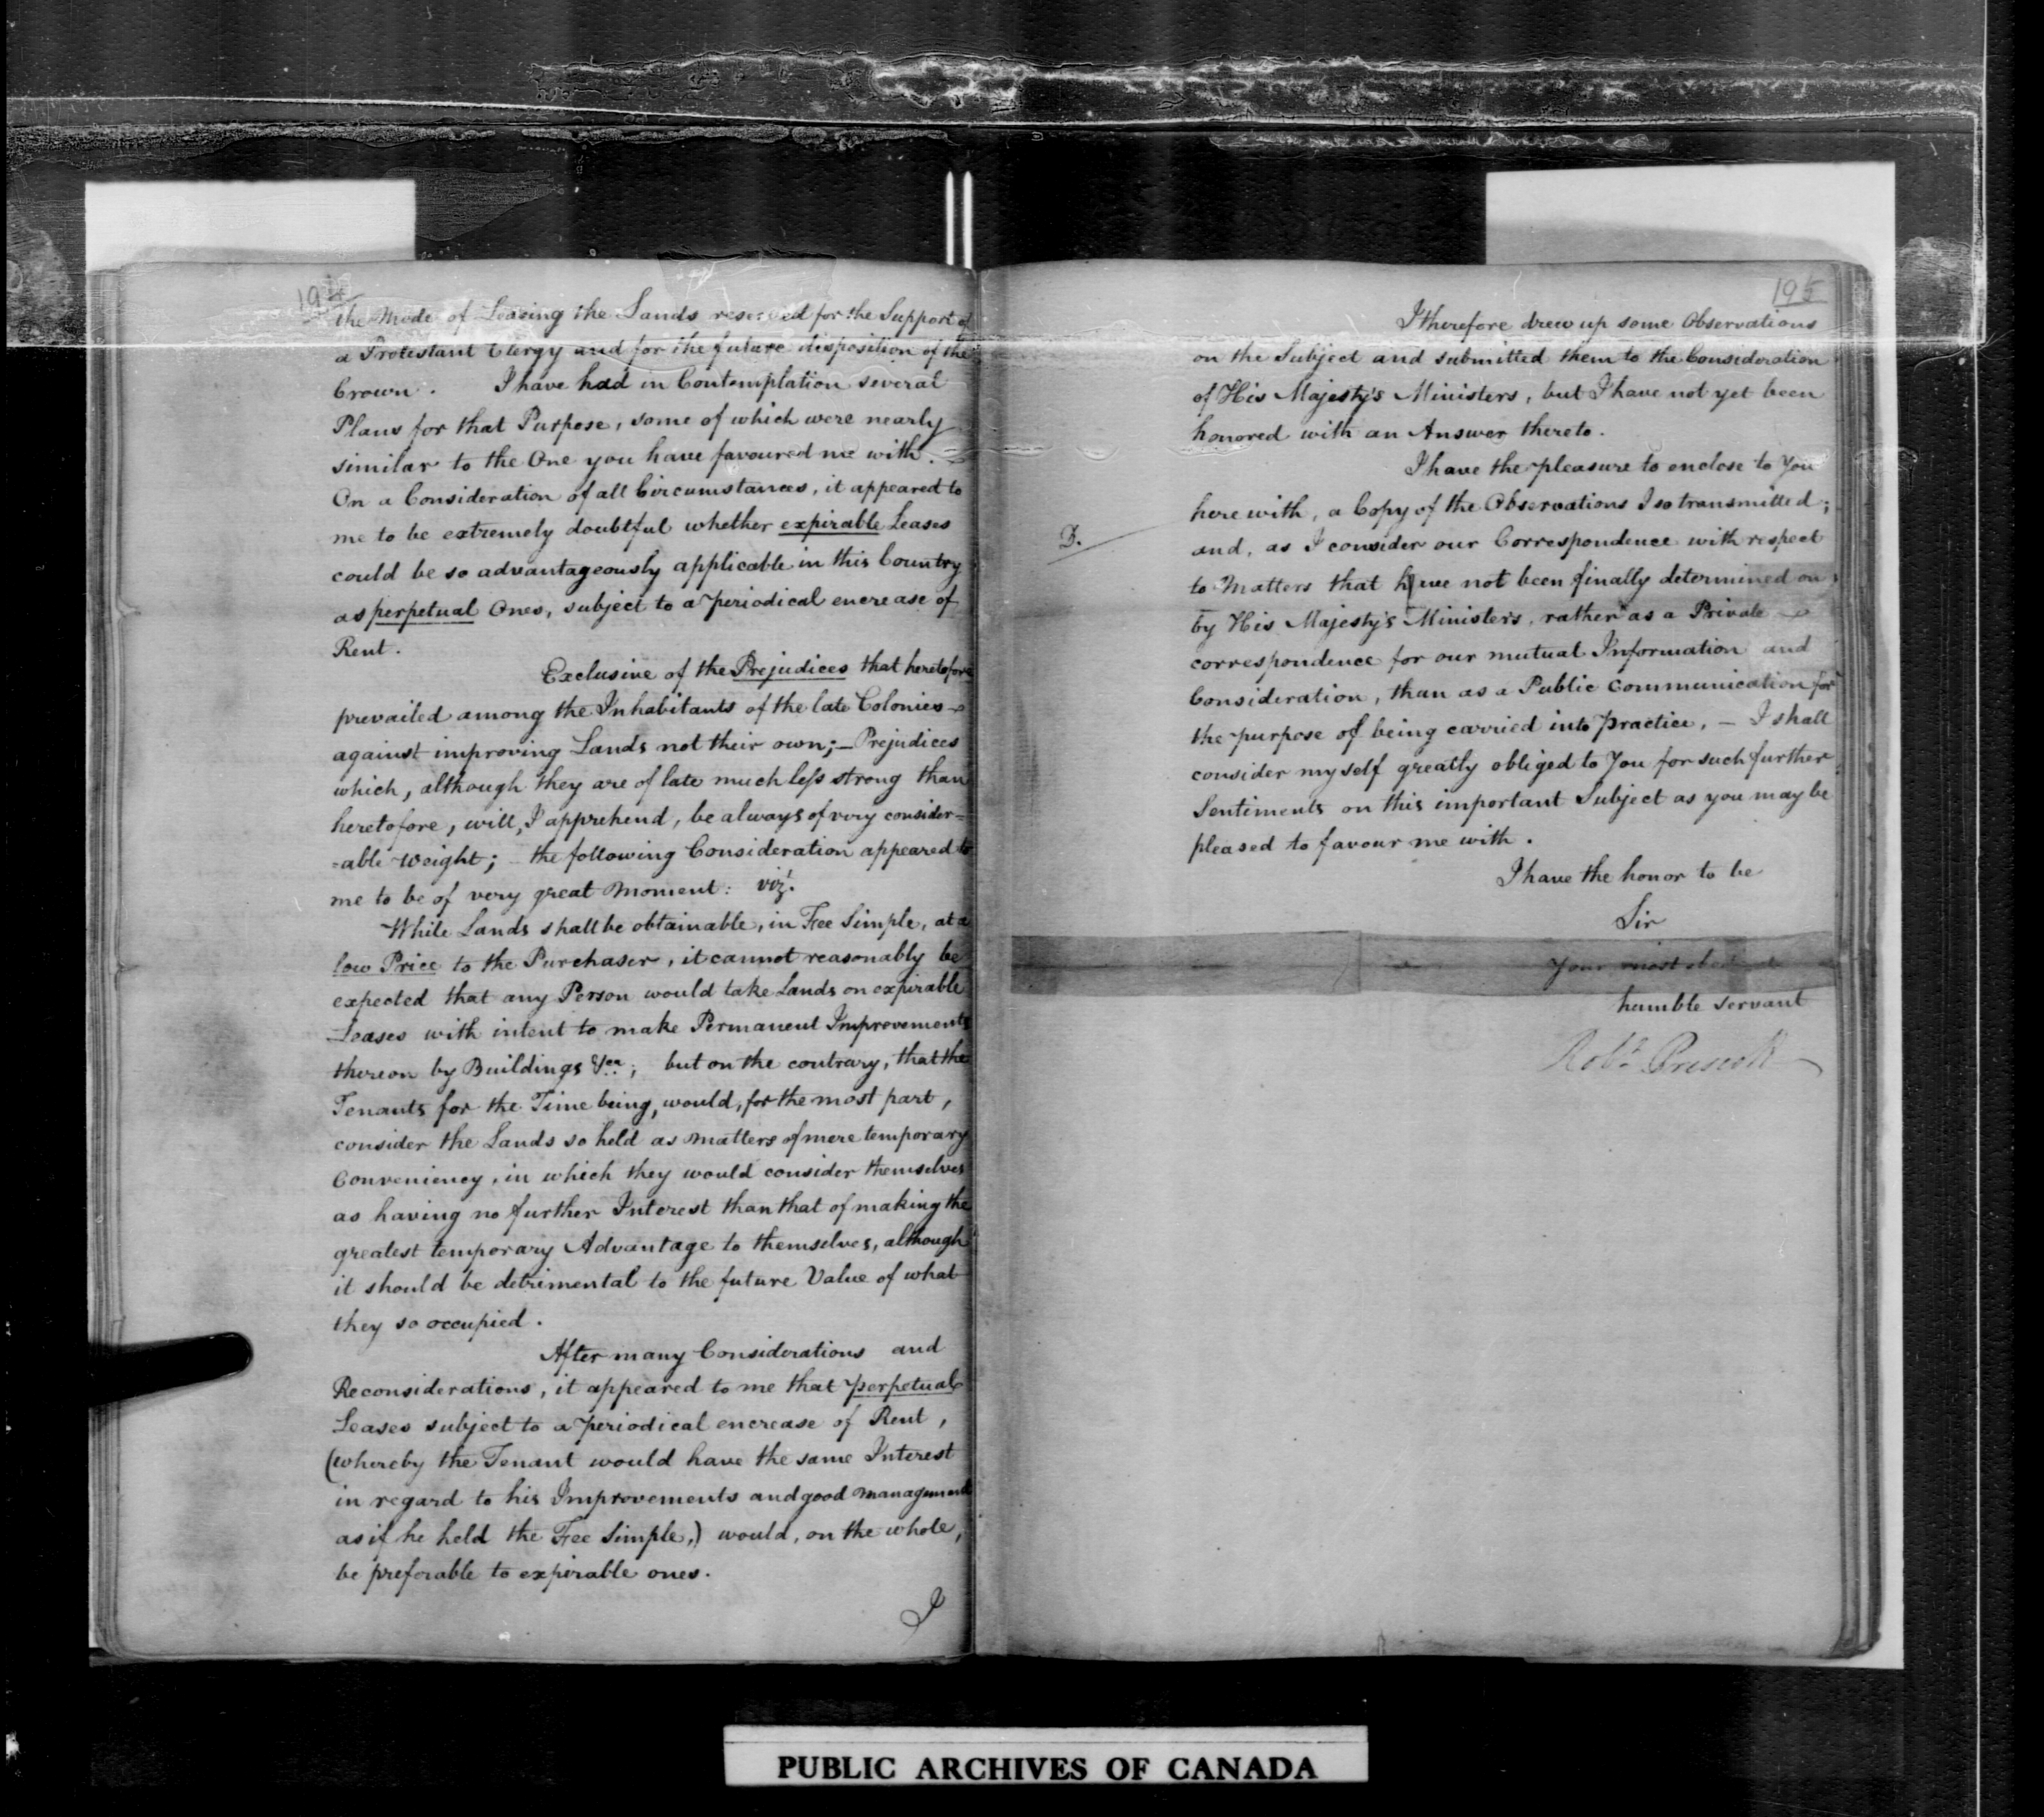 194
the Mode of Leasing the Lands reserved for the Support of
a Protestant Clergy and for the future disposition of the
Crown. I have had in Contemplation several
Plans for that Purpose, some of which were nearly
similar to the One you have favoured me with.
On a Consideration of all Circumstances, it appeared to
me to be extremely doubtful whether expirable Leases
could be so advantageously applicable in this Country
as perpetual Ones, subject to a periodical encrease of
Rent.
Exclusive of the Prejudices that heretofore
prevailed among the Inhabitants of the late Colonies
against improving Lands not their own;— Prejudices
which, although they are of late much less strong than
heretofore, will, I apprehend, be always of very consider=
=able Weight; — the following Consideration appeared to
me to be of very great Moment: vizt.
While Lands shall be obtainable, in Fee Simple, at a
low Price to the Purchaser, it cannot reasonably be
expected that any Person would take Lands on expirable
Leases with intent to make Permanent Improvements
thereon by Buildings &ca; but on the contrary, that the
Tenants for the Time being, would, for the most part,
consider the Lands so held as matters of mere temporary
Conveniency, in which they would consider themselves
as having no further Interest than that of making the
greatest temporary Advantage to themselves, although
it should be detrimental to the future Value of what
they so occupied.
After many Considerations and
Reconsiderations, it appeared to me that perpetual
Leases subject to a periodical encrease of Rent,
(whereby the Tenant would have the same Interest
in regard to his Improvements and good management
as if he held the Fee Simple,) would, on the whole,
be preferable to expirable ones.
I
195
I therefore drew up some Observations
on the Subject and submitted them to the Consideration
of His Majesty's Ministers, but I have not yet been
honored with an Answer thereto.
I have the pleasure to enclose to You
D.
herewith, a Copy of the Observations I so transmitted;
and, as I consider our Correspondence with respect
to Matters that have not been finally determined on
by His Majesty's Ministers, rather as a Private
correspondence for our mutual Information and
Consideration, than as a Public Communication for
the purpose of being carried into practice, — I shall
consider myself greatly obliged to You for such further
Sentiments on this important Subject as you may be
pleased to favour me with.
I have the honor to be
Sir
Your most obedient
humble servant
Robt. Prescott
PUBLIC ARCHIVES OF CANADA